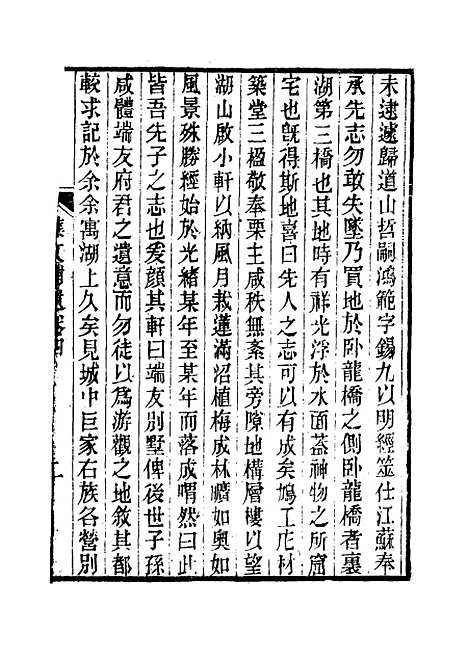 未逮遽歸道山哲嗣鴻範字錫九以明經筮仕江蘇奉
承先志勿敢失墜乃買地於卧龍橋之側卧龍橋者裏
湖第三橋也其地時有祥光浮於水面蓋神物之所窟
宅也旣得斯地喜曰先人之志可以有成矣鳩工庀材
築堂三楹敬奉栗主咸秩無紊其旁隙地構層樓以望
湖山啟小軒以納風月栽蓮滿沼植梅成林曠如奧如
風景殊勝經始於光緒某年至某年而落成喟然曰此
皆吾先子之志也爰顏其軒曰端友別墅俾後世子孫
咸體端友府君之遺意而勿徒以爲游觀之地敘其都
較求記於余余寓湖上久矣見城中巨家右族各營別
文補遺卷四